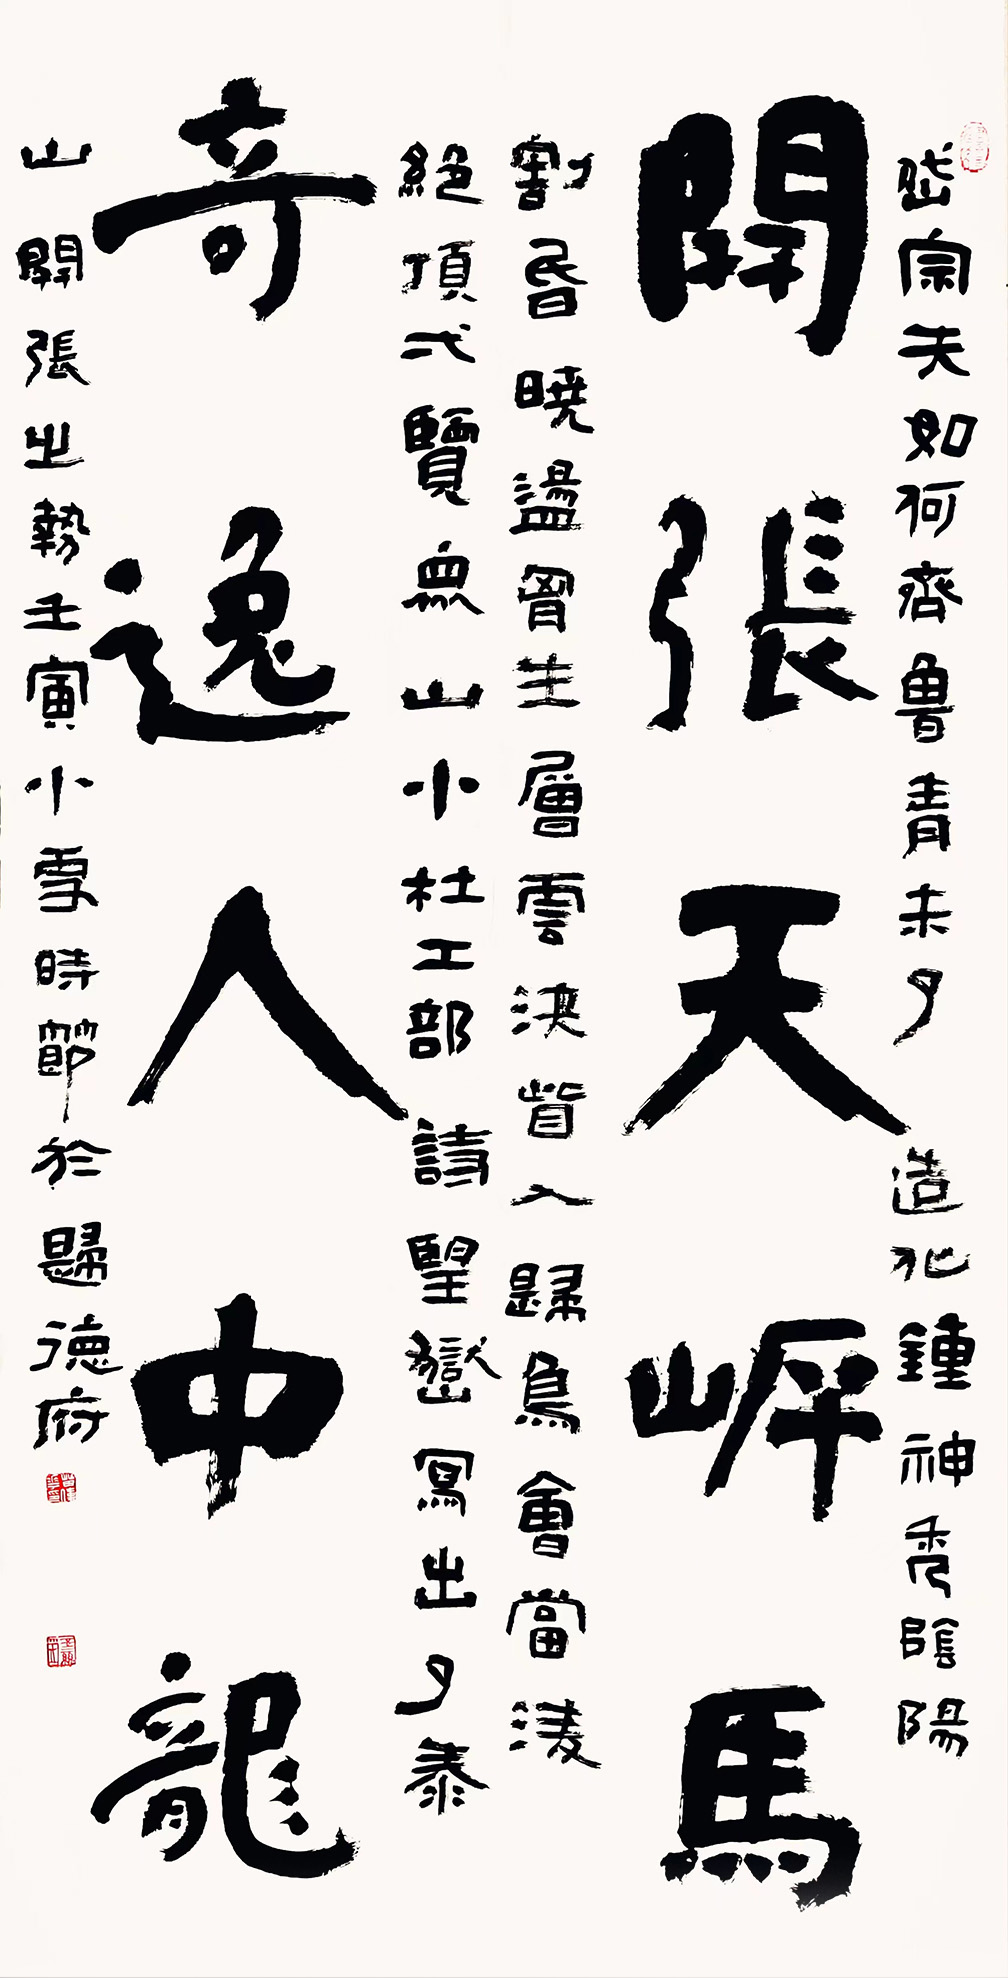 岱宗夫如何齊魯青未了造化鍾神秀陰陽
開張天岸馬
割昏曉盪胷生層雲決眥入歸鳥會當淩
絕頂一覽眾山小杜工部詩望嶽寫出了泰
奇逸人中龍
山開張之勢壬寅小雪時節於歸德府